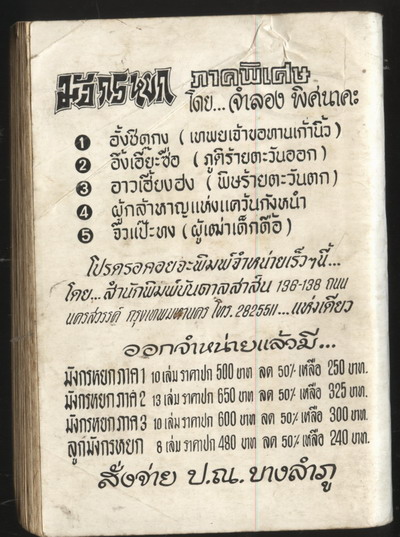 มังกรหยก ภาคพิเศษ
โดย... จำลอง พิศนาคะ
1 อั้งชีดกง (เทพยเจ้าขอทานเก้านิ้ว)
2 อึ้งเอี๊ยะซือ (ภูติร้ายตะวันออก)
3 อาวเอี้ยงฮง (พิษร้ายตะวันตก)
4 ผู้กล้าหาญแห่งแคว้นกังหนำ
5 จิวแป๊ะทง (ผู้เฒ่าเด็กดื้อ)
โปรดรอคอยจะพิมพ์จำหน่ายเร็วๆนี้...
โดย... สำนักพิมพ์บันดาลสาส์น 136-138 ถนน
นครสวรรค์ กรุงเทพมหานคร โทร. 2825511... แห่งเดียว
ออกจำหน่ายแล้วมี...
มังกรหยกภาค 1 10 เล่ม ราคาปก 500 บาท ลด 50% เหลือ 250 บาท.
มังกรหยกภาค 2 13 เล่ม ราคาปก 650 บาท ลด 50% เหลือ 325 บาท.
มังกรหยกภาค 3 10 เล่ม ราคาปก 600 บาท ลด 50% เหลือ 300 บาท.
ลูกมังกรหยก 8 เล่ม ราคาปก 480 บาท ลด 50% เหลือ 240 บาท.
สั่งจ่าย ป.ณ. บางลำภู